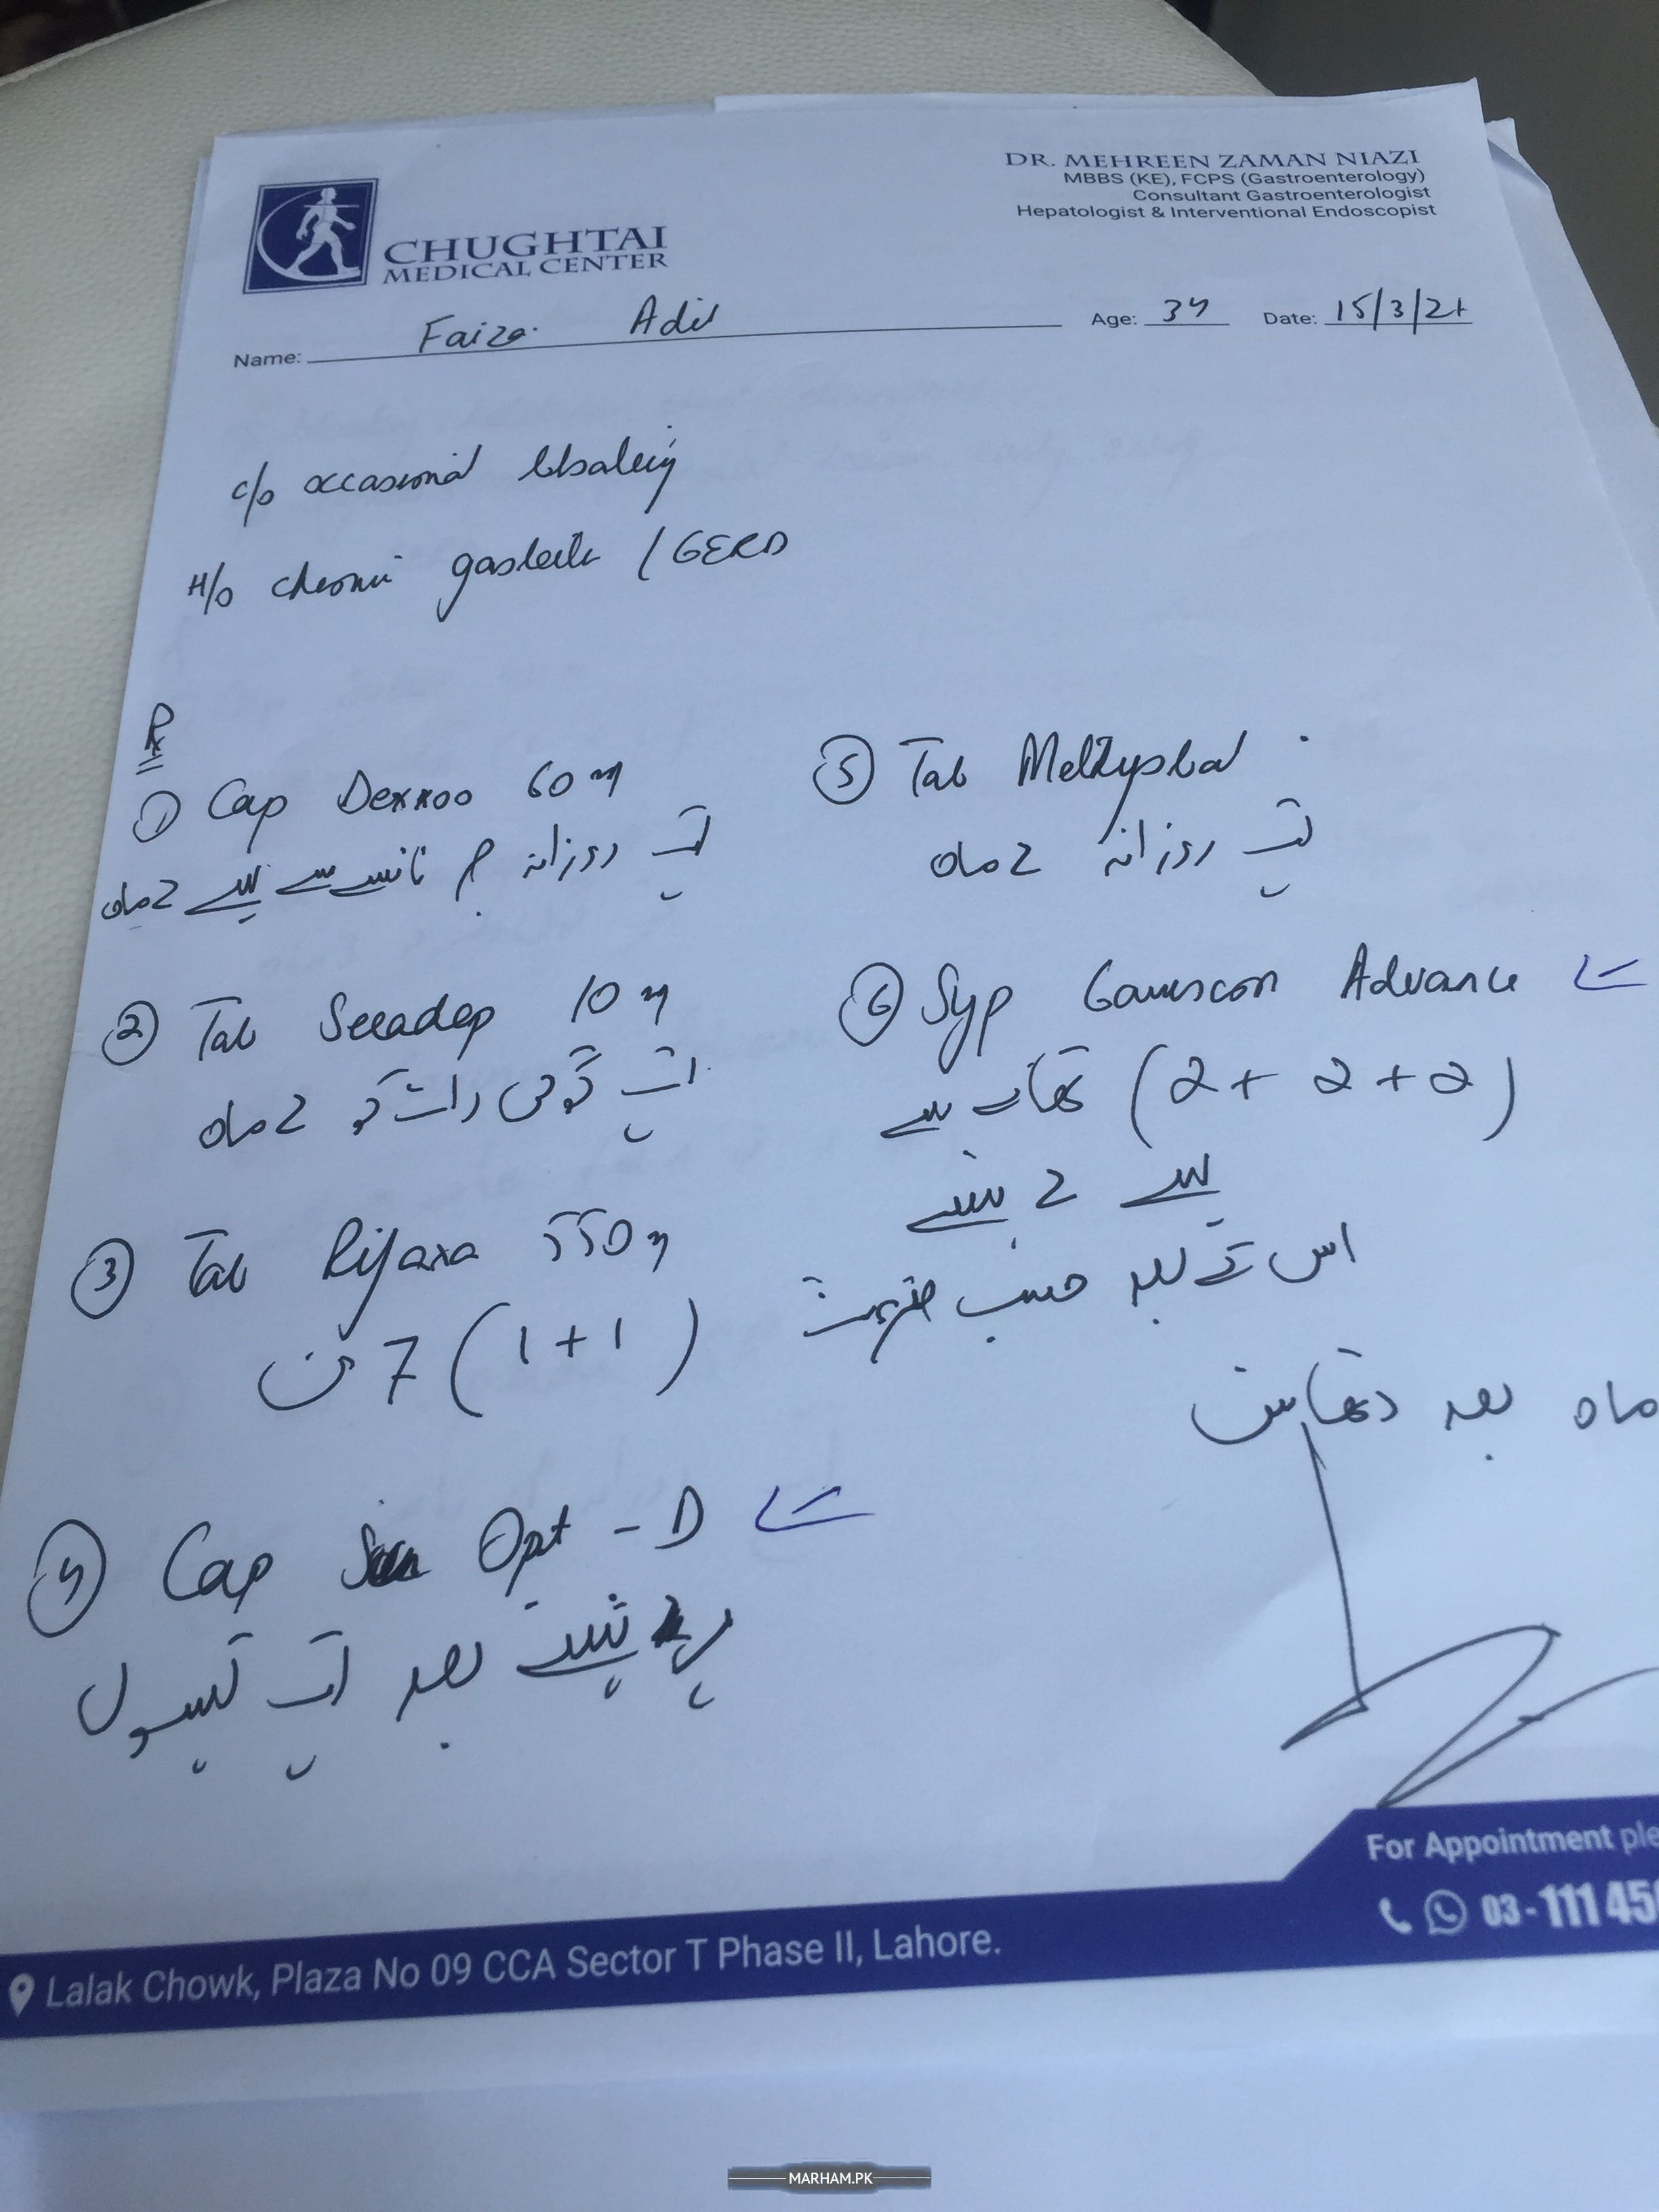 DR. MEHREEN ZAMAN NIAZI
MBBS (KE), FCPS (Gastroenterology)
Consultant Gastroenterologist
Hepatologist & Interventional Endoscopist
CHUGHTAI
MEDICAL CENTER
Name: Faiza Adil Age: 34 Date: 15/3/21
c/o occasional bloating
H/o chronic gastritis / GERD
Rx
① Cap Dexxoo 60 mg
ایک روزانہ ناشتے سے پہلے 2 ماہ
② Tab Seradep 10 mg
ایک گولی رات کو 2 ماہ
③ Tab Rifaxa 550 mg
(1+1) 7 دن
④ Cap Opt - D
بعد ایک کیپسول
⑤ Tab
ایک روزانہ 2 ماہ
⑥ Syp Gaviscon Advance
(2 + 2 + 2) کھانے سے
پہلے 2 ہفتے
اس کے بعد حسب ضرورت
ماہ بعد دکھائیں
For Appointment ple
03-111 45
Lalak Chowk, Plaza No 09 CCA Sector T Phase II, Lahore.
MARHAM.PK